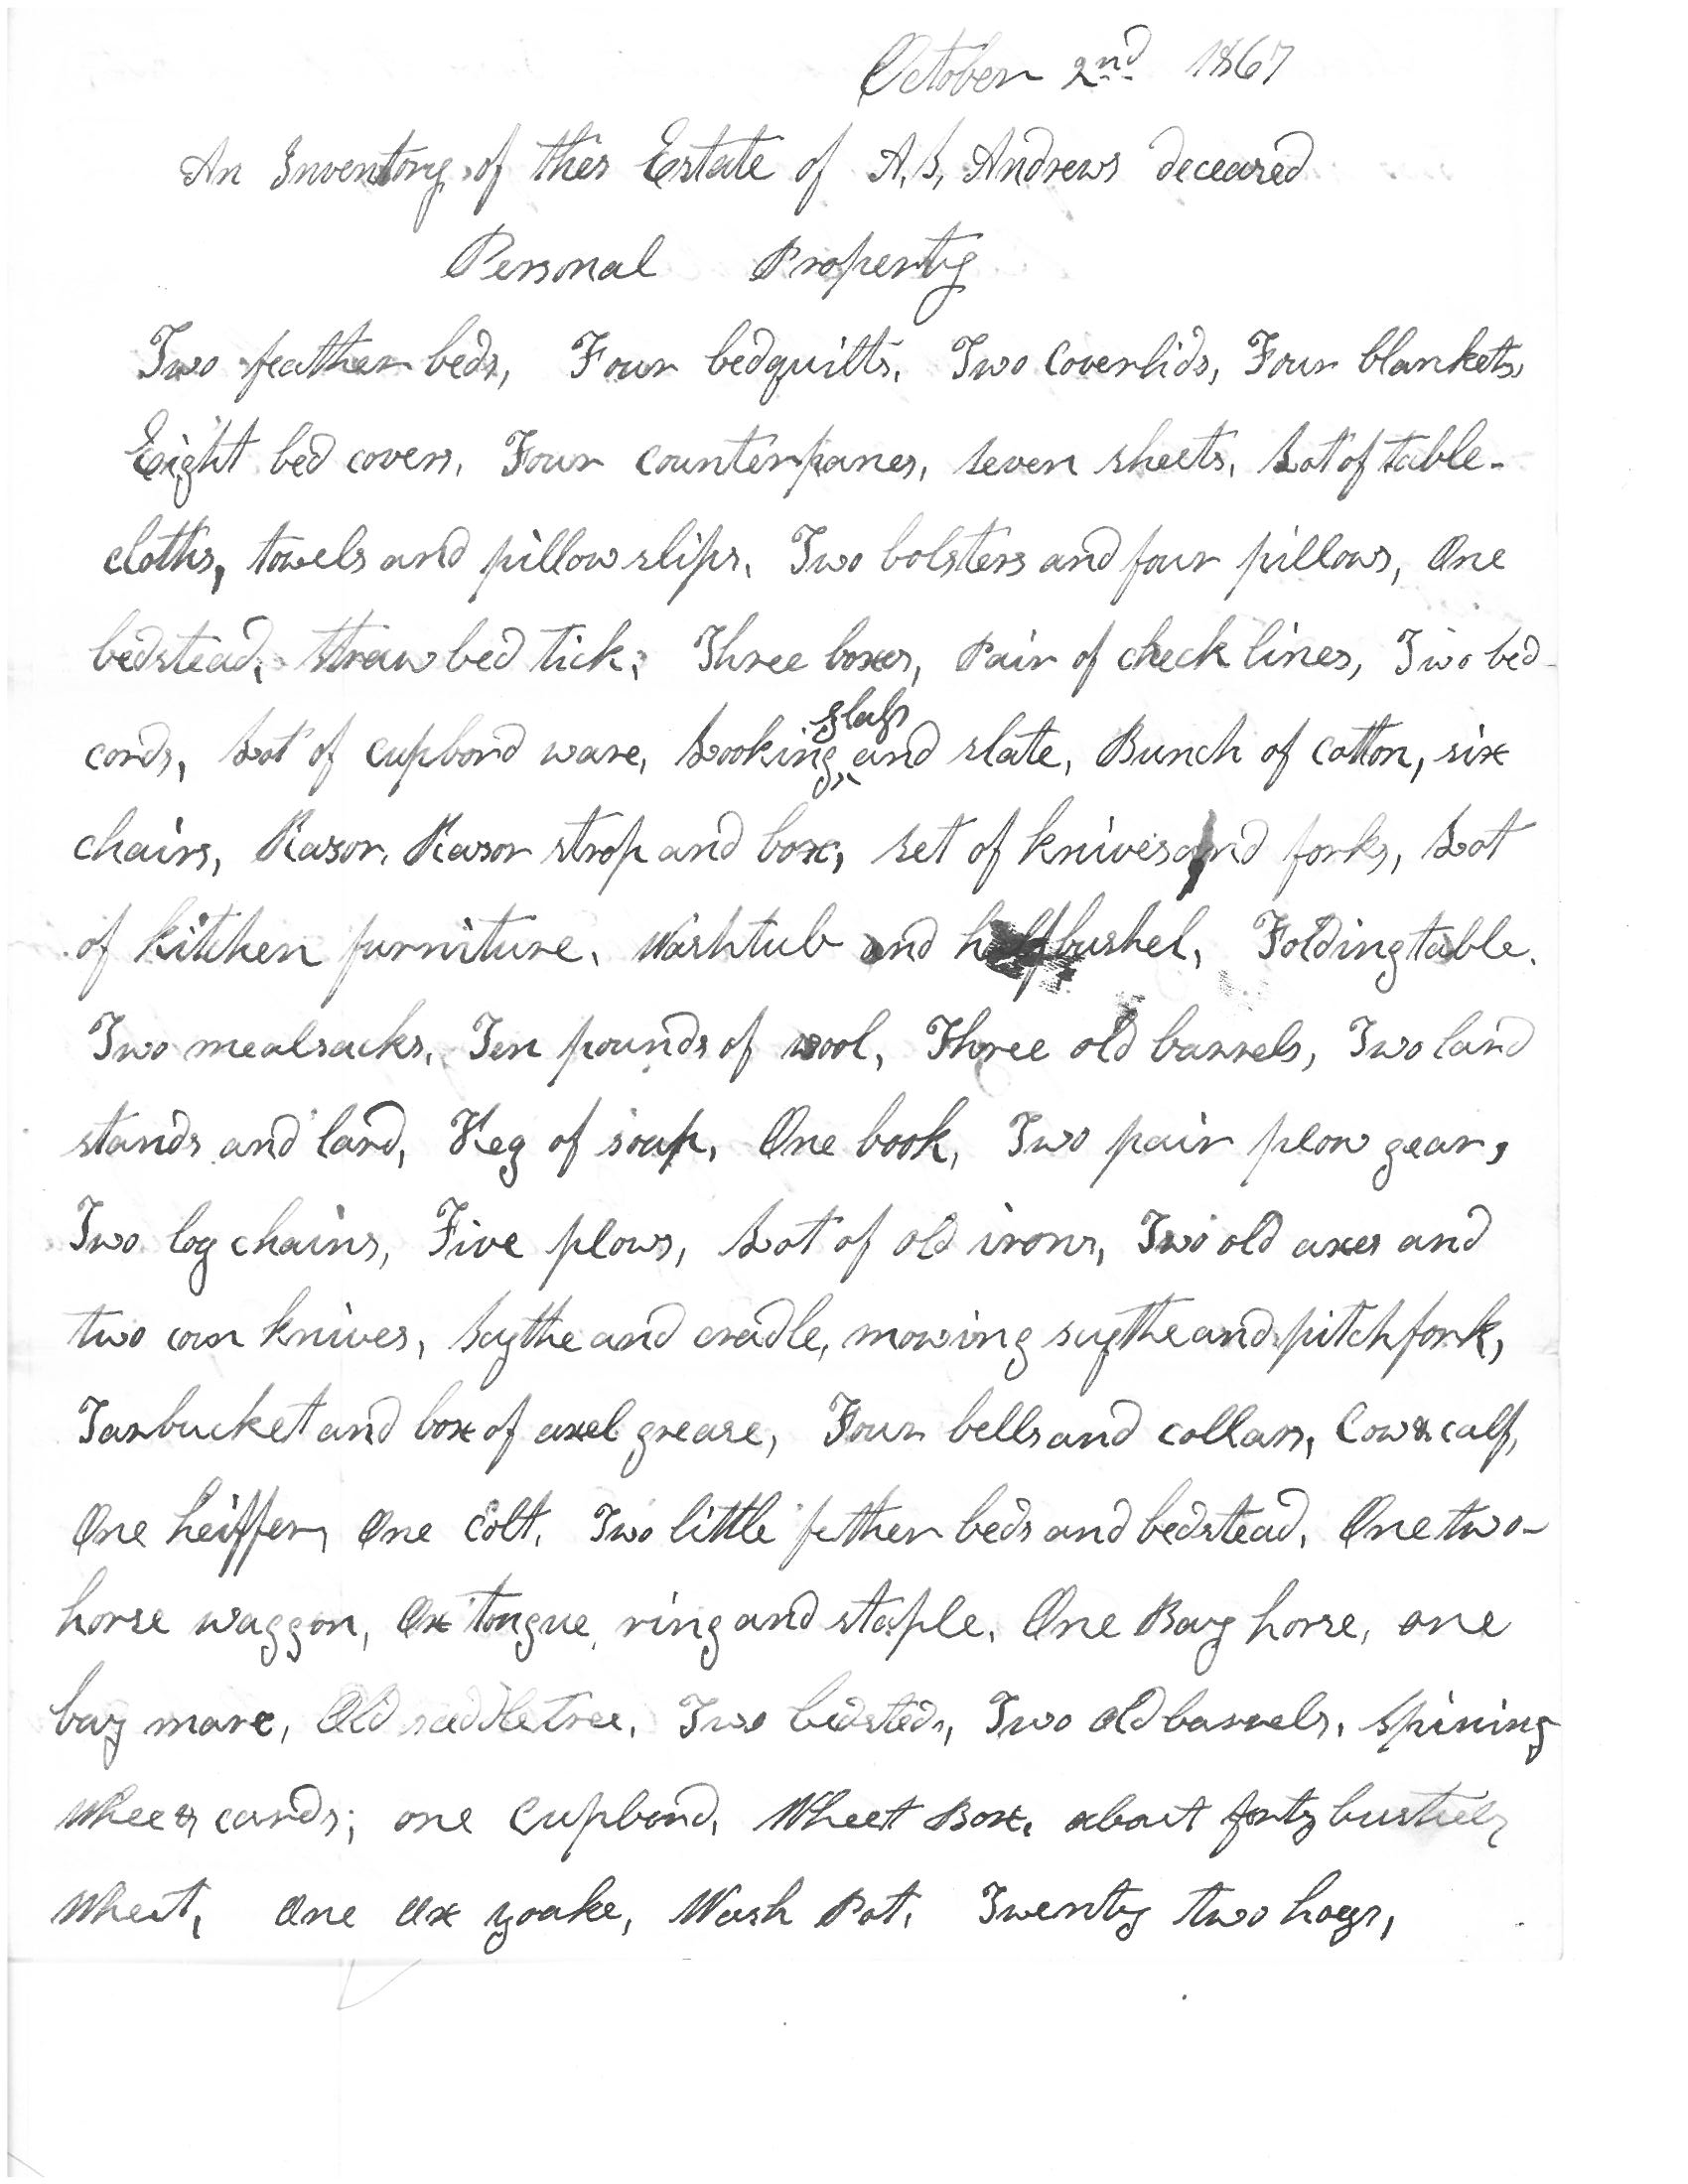 October 2nd 1867
An Inventory of thes Estate of A. S. Andrews deceased
Personal Property
Two feather beds, Four bedquilts, Two Coverlids, Four blankets,
Eight bed covers, Four counterpanes, seven sheets, Lot of table-
cloths, towels and pillow slips, Two bolsters and four pillows, One
bedstead, straw bed tick, Three boxes, Pair of check lines, Two bed-
cords, Lot of cupbord ware, Looking glass and slate, Bunch of cotton, six
chairs, Rasor, Rasor strop and box, set of knives and forks, Lot
of kitchen furniture, Washtub and half bushel, Folding table.
Two mealsacks, Ten pounds of wool, Three old barrels, Two lard
stands and lard, Keg of soap, One book, Two pair plow gear,
Two log chains, Five plows, Lot of old irons, Two old axes and
two corn knives, Scythe and cradle, mowing scythe and pitchfork,
Tarbucket and box of axel grease, Four bells and collars, Cow & calf,
One heiffer, One Colt, Two little fether beds and bedstead, One two-
horse waggon, Ox tongue, ring and staple, One Bay horse, one
bay mare, Old saddletree, Two bedsteds, Two old barrels, Spining
Whee & cards; one Cupbord, Wheet Box, about forty bushels
Wheat, One Ox yoake, Wash Pot, Twenty two hogs,